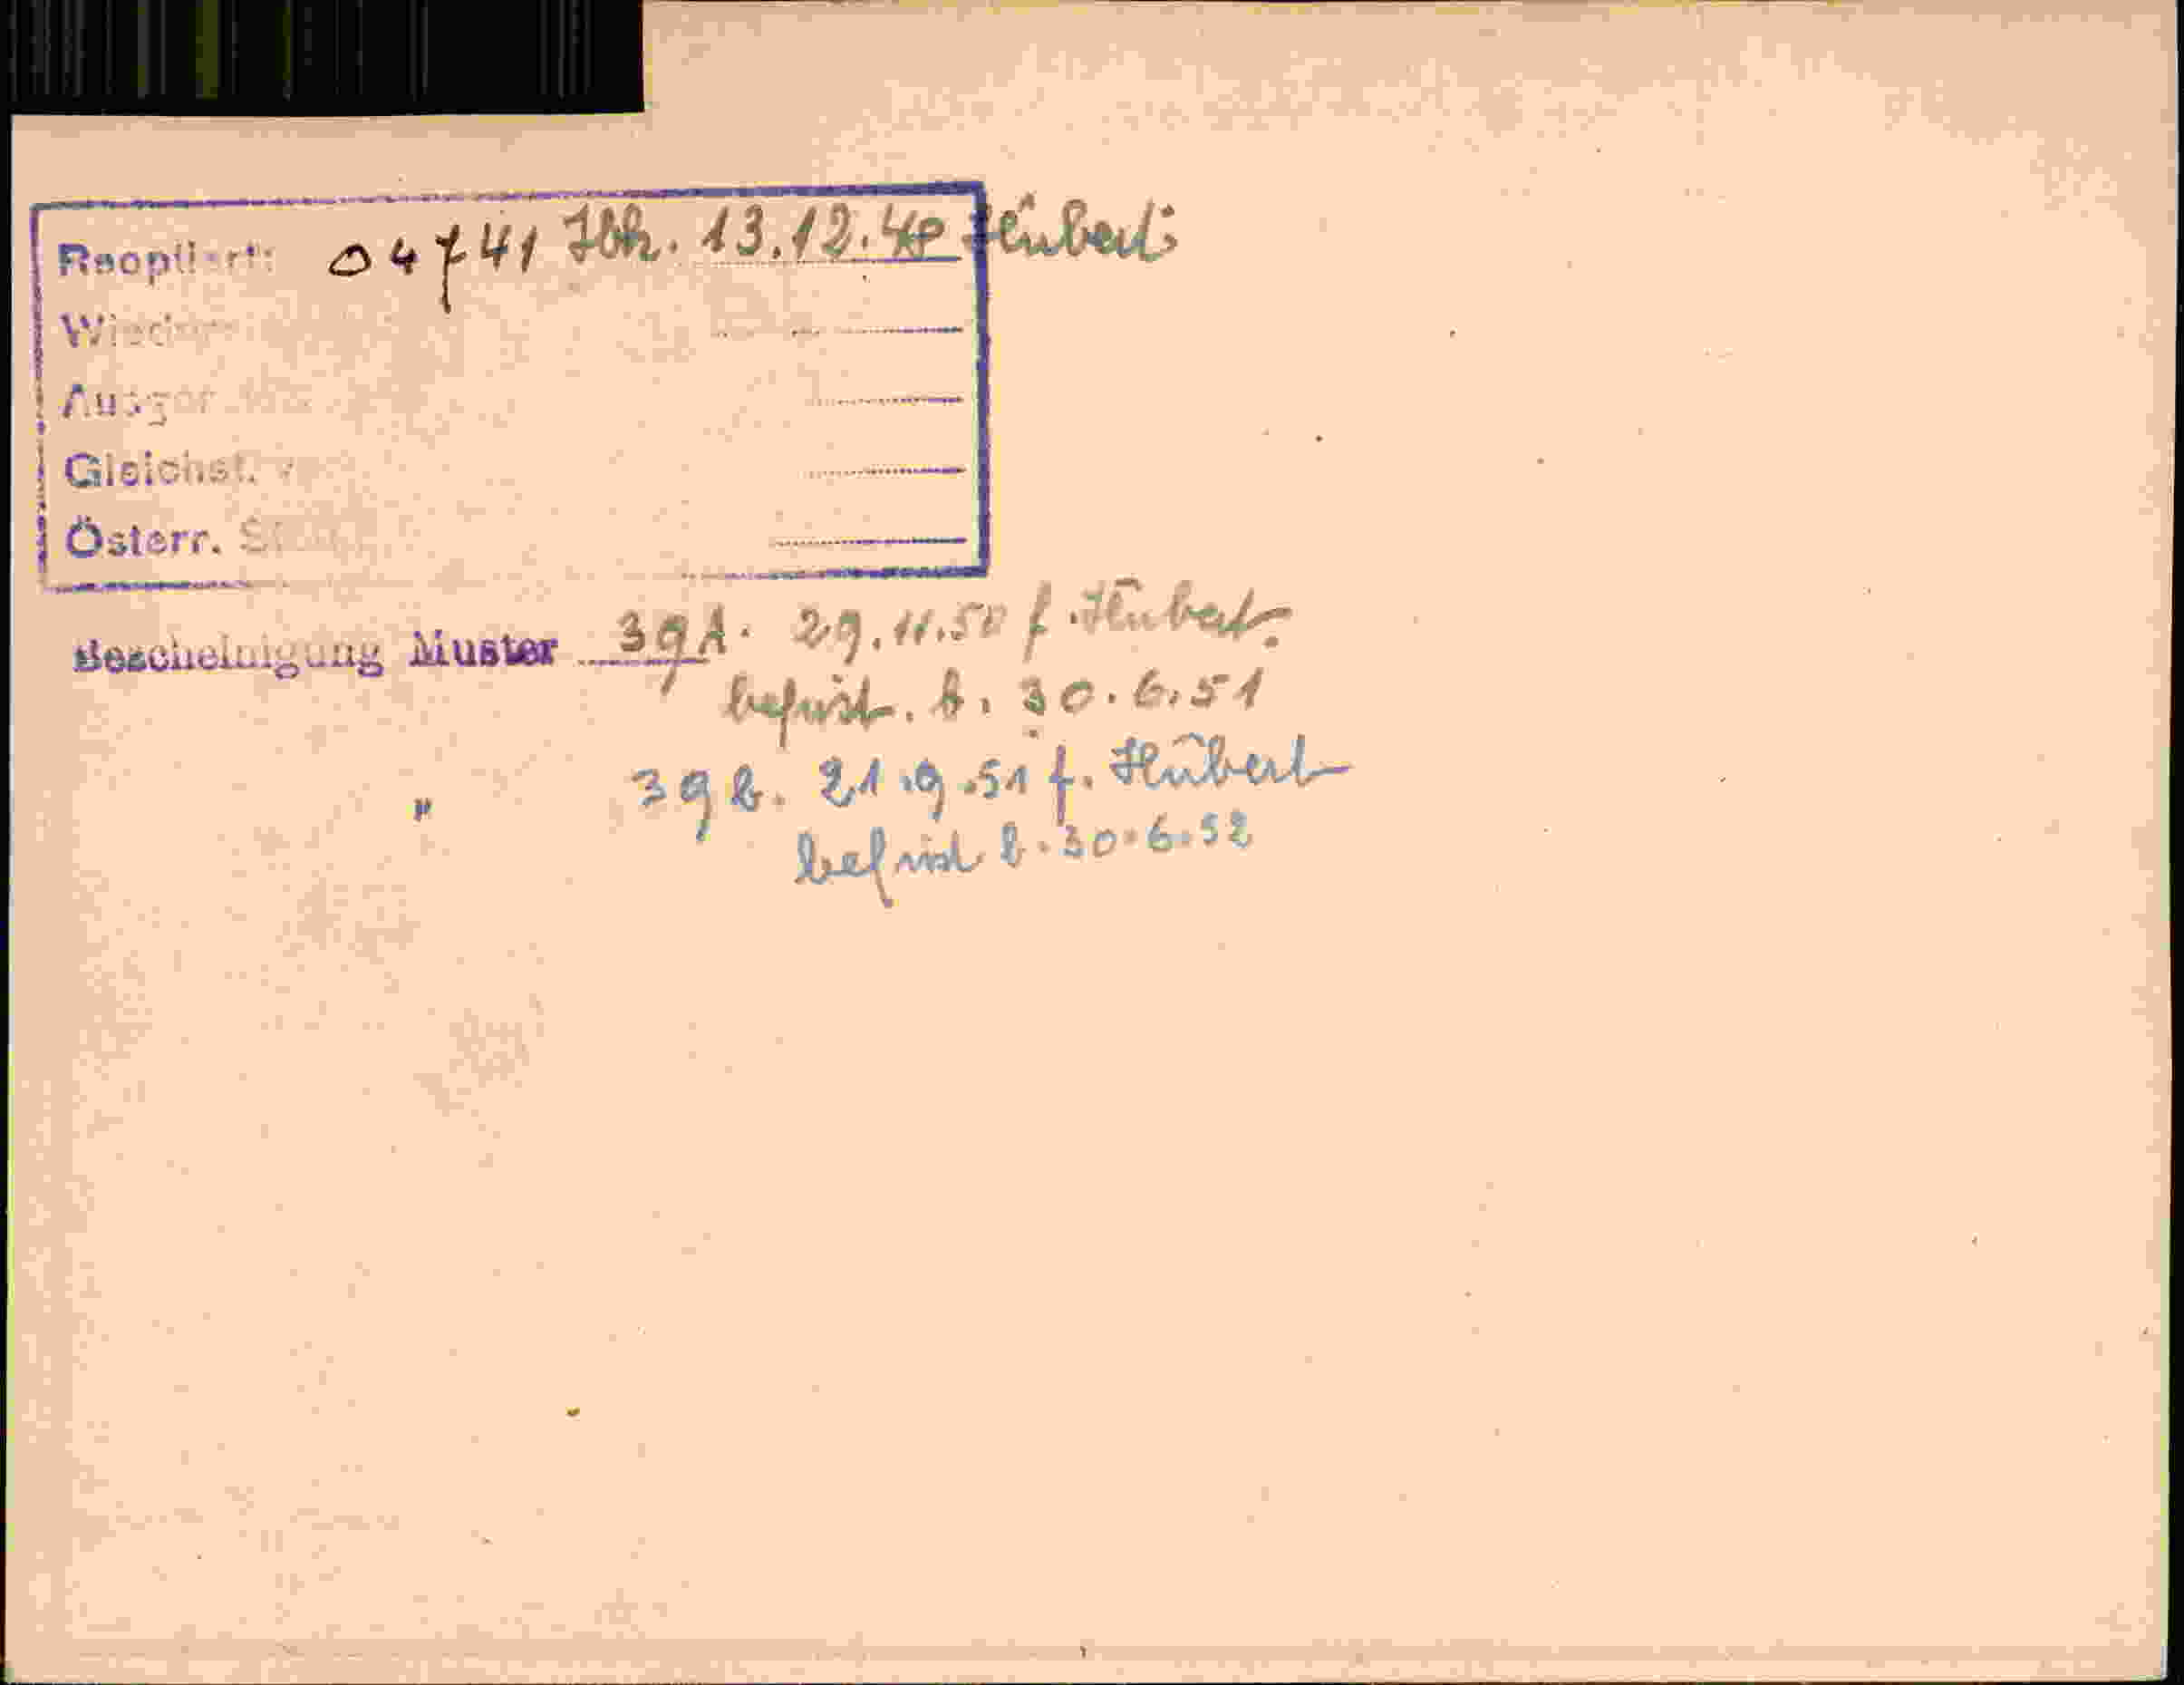 Reoptiert: 04741 Ibk. 13.12.48 Hubert
Gleichst.
Österr.
Bescheinigung Muster 39A. 29.11.50 f. Hubert.
befrist. b. 30.6.51
" 39b. 21.9.51 f. Hubert
befrist b. 30.6.52